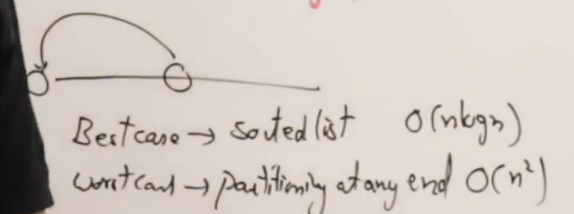 Best case → Sorted list O(nlogn)
Worst case → Partitioning at any end O(n²)